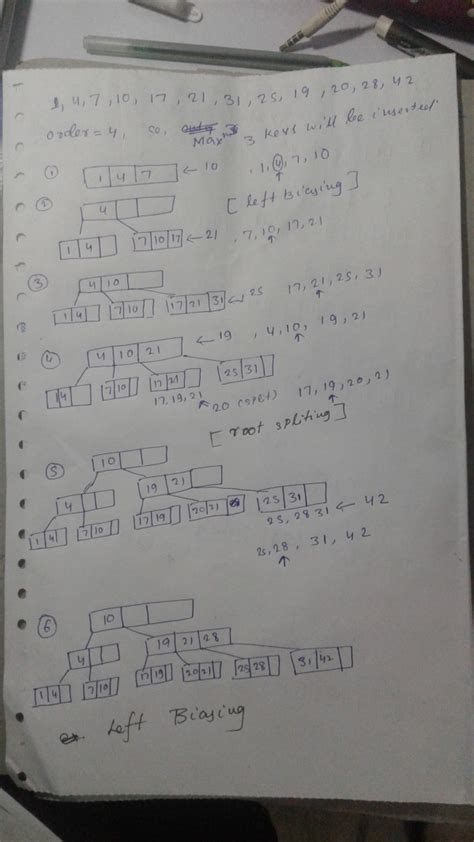 1, 4, 7, 10, 17, 21, 31, 25, 19, 20, 28, 42
order = 4, so, Max^m 3 keys will be inserted.
① 1 4 7 ← 10 , 1, 4, 7, 10
② 4 [left Biasing]
1 4 7 10 17 ← 21 , 7, 10, 17, 21
③ 4 10
1 4 7 10 17 21 31 ← 25 17, 21, 25, 31
④ 4 10 21 ← 19, 4, 10, 19, 21
1 4 7 10 17 21 25 31
17, 19, 21 ← 20 (split) 17, 19, 20, 21
[root spliting]
⑤ 10
4 19 21
1 4 7 10 17 19 20 21 25 31
25, 28 31 ← 42
25, 28, 31, 42
⑥ 10
4 19 21 28
1 4 7 10 17 19 20 21 25 28 31 42
Left Biasing